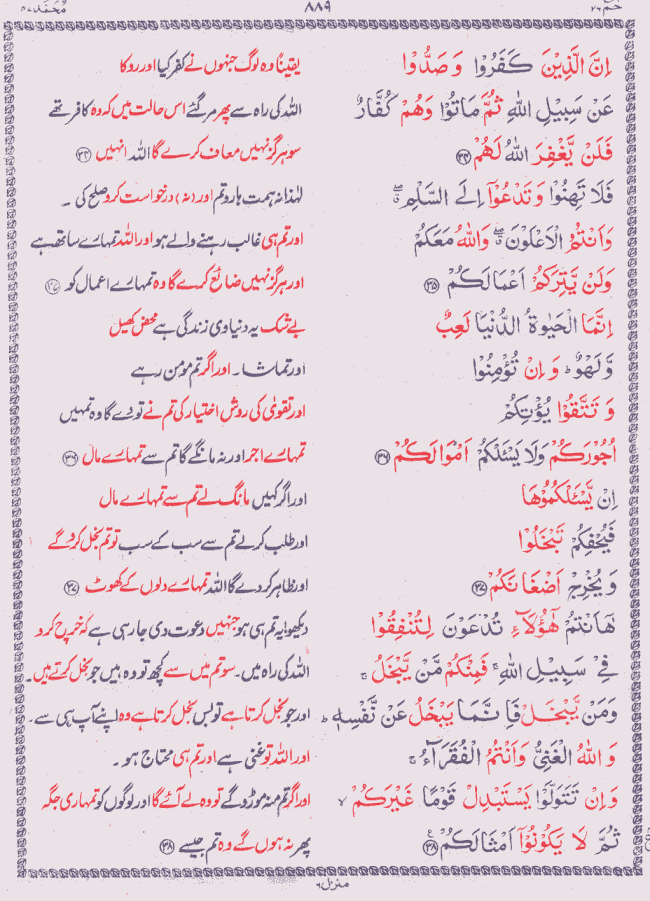 حٰمٓ ۲۶ ۸۸۹ مُحَمَّد ۴۷
اِنَّ الَّذِيْنَ كَفَرُوْا وَصَدُّوْا یقیناً وہ لوگ جنہوں نے کفر کیا اور روکا
عَنْ سَبِيْلِ اللّٰهِ ثُمَّ مَاتُوْا وَهُمْ كُفَّارٌ اللہ کی راہ سے پھر مر گئے اس حالت میں کہ وہ کافر تھے
فَلَنْ يَّغْفِرَ اللّٰهُ لَهُمْ ﴿۳۴﴾ سو ہرگز نہیں معاف کرے گا اللہ انہیں ﴿۳۴﴾
فَلَا تَهِنُوْا وَتَدْعُوْٓا اِلَى السَّلْمِ ۖ لہٰذا نہ ہمت ہارو تم اور (نہ) درخواست کرو صلح کی ۔
وَاَنْتُمُ الْاَعْلَوْنَ ۖ وَاللّٰهُ مَعَكُمْ اور تم ہی غالب رہنے والے ہو اور اللہ تمہارے ساتھ ہے
وَلَنْ يَّتِرَكُمْ اَعْمَالَكُمْ ﴿۳۵﴾ اور ہرگز نہیں ضائع کرے گا وہ تمہارے اعمال کو ﴿۳۵﴾
اِنَّمَا الْحَيٰوةُ الدُّنْيَا لَعِبٌ بے شک یہ دنیاوی زندگی ہے محض کھیل
وَّلَهْوٌ ؕ وَاِنْ تُؤْمِنُوْا اور تماشا ۔ اور اگر تم مومن رہے
وَتَتَّقُوْا يُؤْتِكُمْ اور تقویٰ کی روش اختیار کی تم نے تو دے گا وہ تمہیں
اُجُوْرَكُمْ وَلَا يَسْـَٔلْكُمْ اَمْوَالَكُمْ ﴿۳۶﴾ تمہارے اجر اور نہ مانگے گا تم سے تمہارے مال ﴿۳۶﴾
اِنْ يَّسْـَٔلْكُمُوْهَا اور اگر کہیں مانگ لے تم سے تمہارے مال
فَيُحْفِكُمْ تَبْخَلُوْا اور طلب کرلے تم سے سب کے سب تو تم بخل کرو گے
وَيُخْرِجْ اَضْغَانَكُمْ ﴿۳۷﴾ اور ظاہر کردے گا اللہ تمہارے دلوں کے کھوٹ ﴿۳۷﴾
هٰٓاَنْتُمْ هٰٓؤُلَآءِ تُدْعَوْنَ لِتُنْفِقُوْا دیکھو! یہ تم ہی ہو جنہیں دعوت دی جا رہی ہے کہ خرچ کرو
فِيْ سَبِيْلِ اللّٰهِ ۚ فَمِنْكُمْ مَّنْ يَّبْخَلُ ۚ اللہ کی راہ میں ۔ سو تم میں سے کچھ تو وہ ہیں جو بخل کرتے ہیں ۔
وَمَنْ يَّبْخَلْ فَاِنَّمَا يَبْخَلُ عَنْ نَّفْسِهٖ ؕ اور جو بخل کرتا ہے تو بس بخل کرتا ہے وہ اپنے آپ ہی سے ۔
وَاللّٰهُ الْغَنِيُّ وَاَنْتُمُ الْفُقَرَآءُ ۚ اور اللہ تو غنی ہے اور تم ہی محتاج ہو ۔
وَاِنْ تَتَوَلَّوْا يَسْتَبْدِلْ قَوْمًا غَيْرَكُمْ ۙ اور اگر تم منہ موڑو گے تو وہ لے آئے گا اور لوگوں کو تمہاری جگہ
ثُمَّ لَا يَكُوْنُوْٓا اَمْثَالَكُمْ ﴿۳۸﴾ پھر نہ ہوں گے وہ تم جیسے ﴿۳۸﴾
منزل ۶